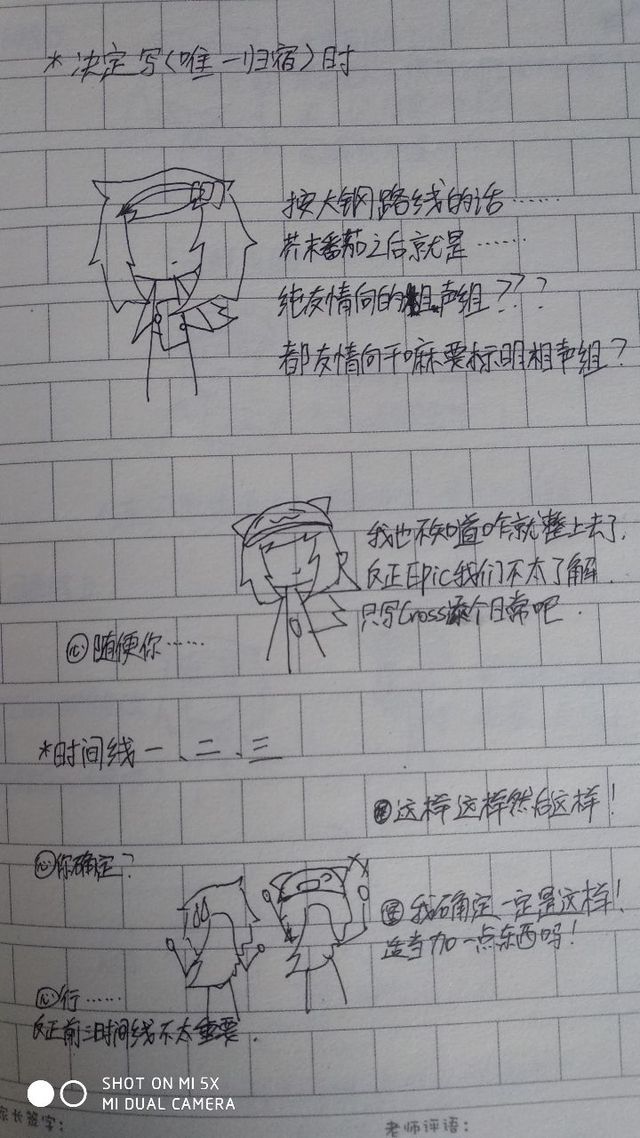 *决定写(唯一归宿)时
按大纲路线的话……
芥末番茄之后就是……
纯友情向的相声组???
都友情向干嘛要标明相声组?
我也不知道咋就整上去了,
反正Epic我们不太了解.
只写Cross逐个日常吧.
心 随便你……
*时间线一、二、三
这样这样然后这样!
心 你确定?
我确定一定是这样!
适当加一点东西吗!
心 行……
反正前三时间线不太重要.
SHOT ON MI 5X
MI DUAL CAMERA
家长签字:
老师评语: